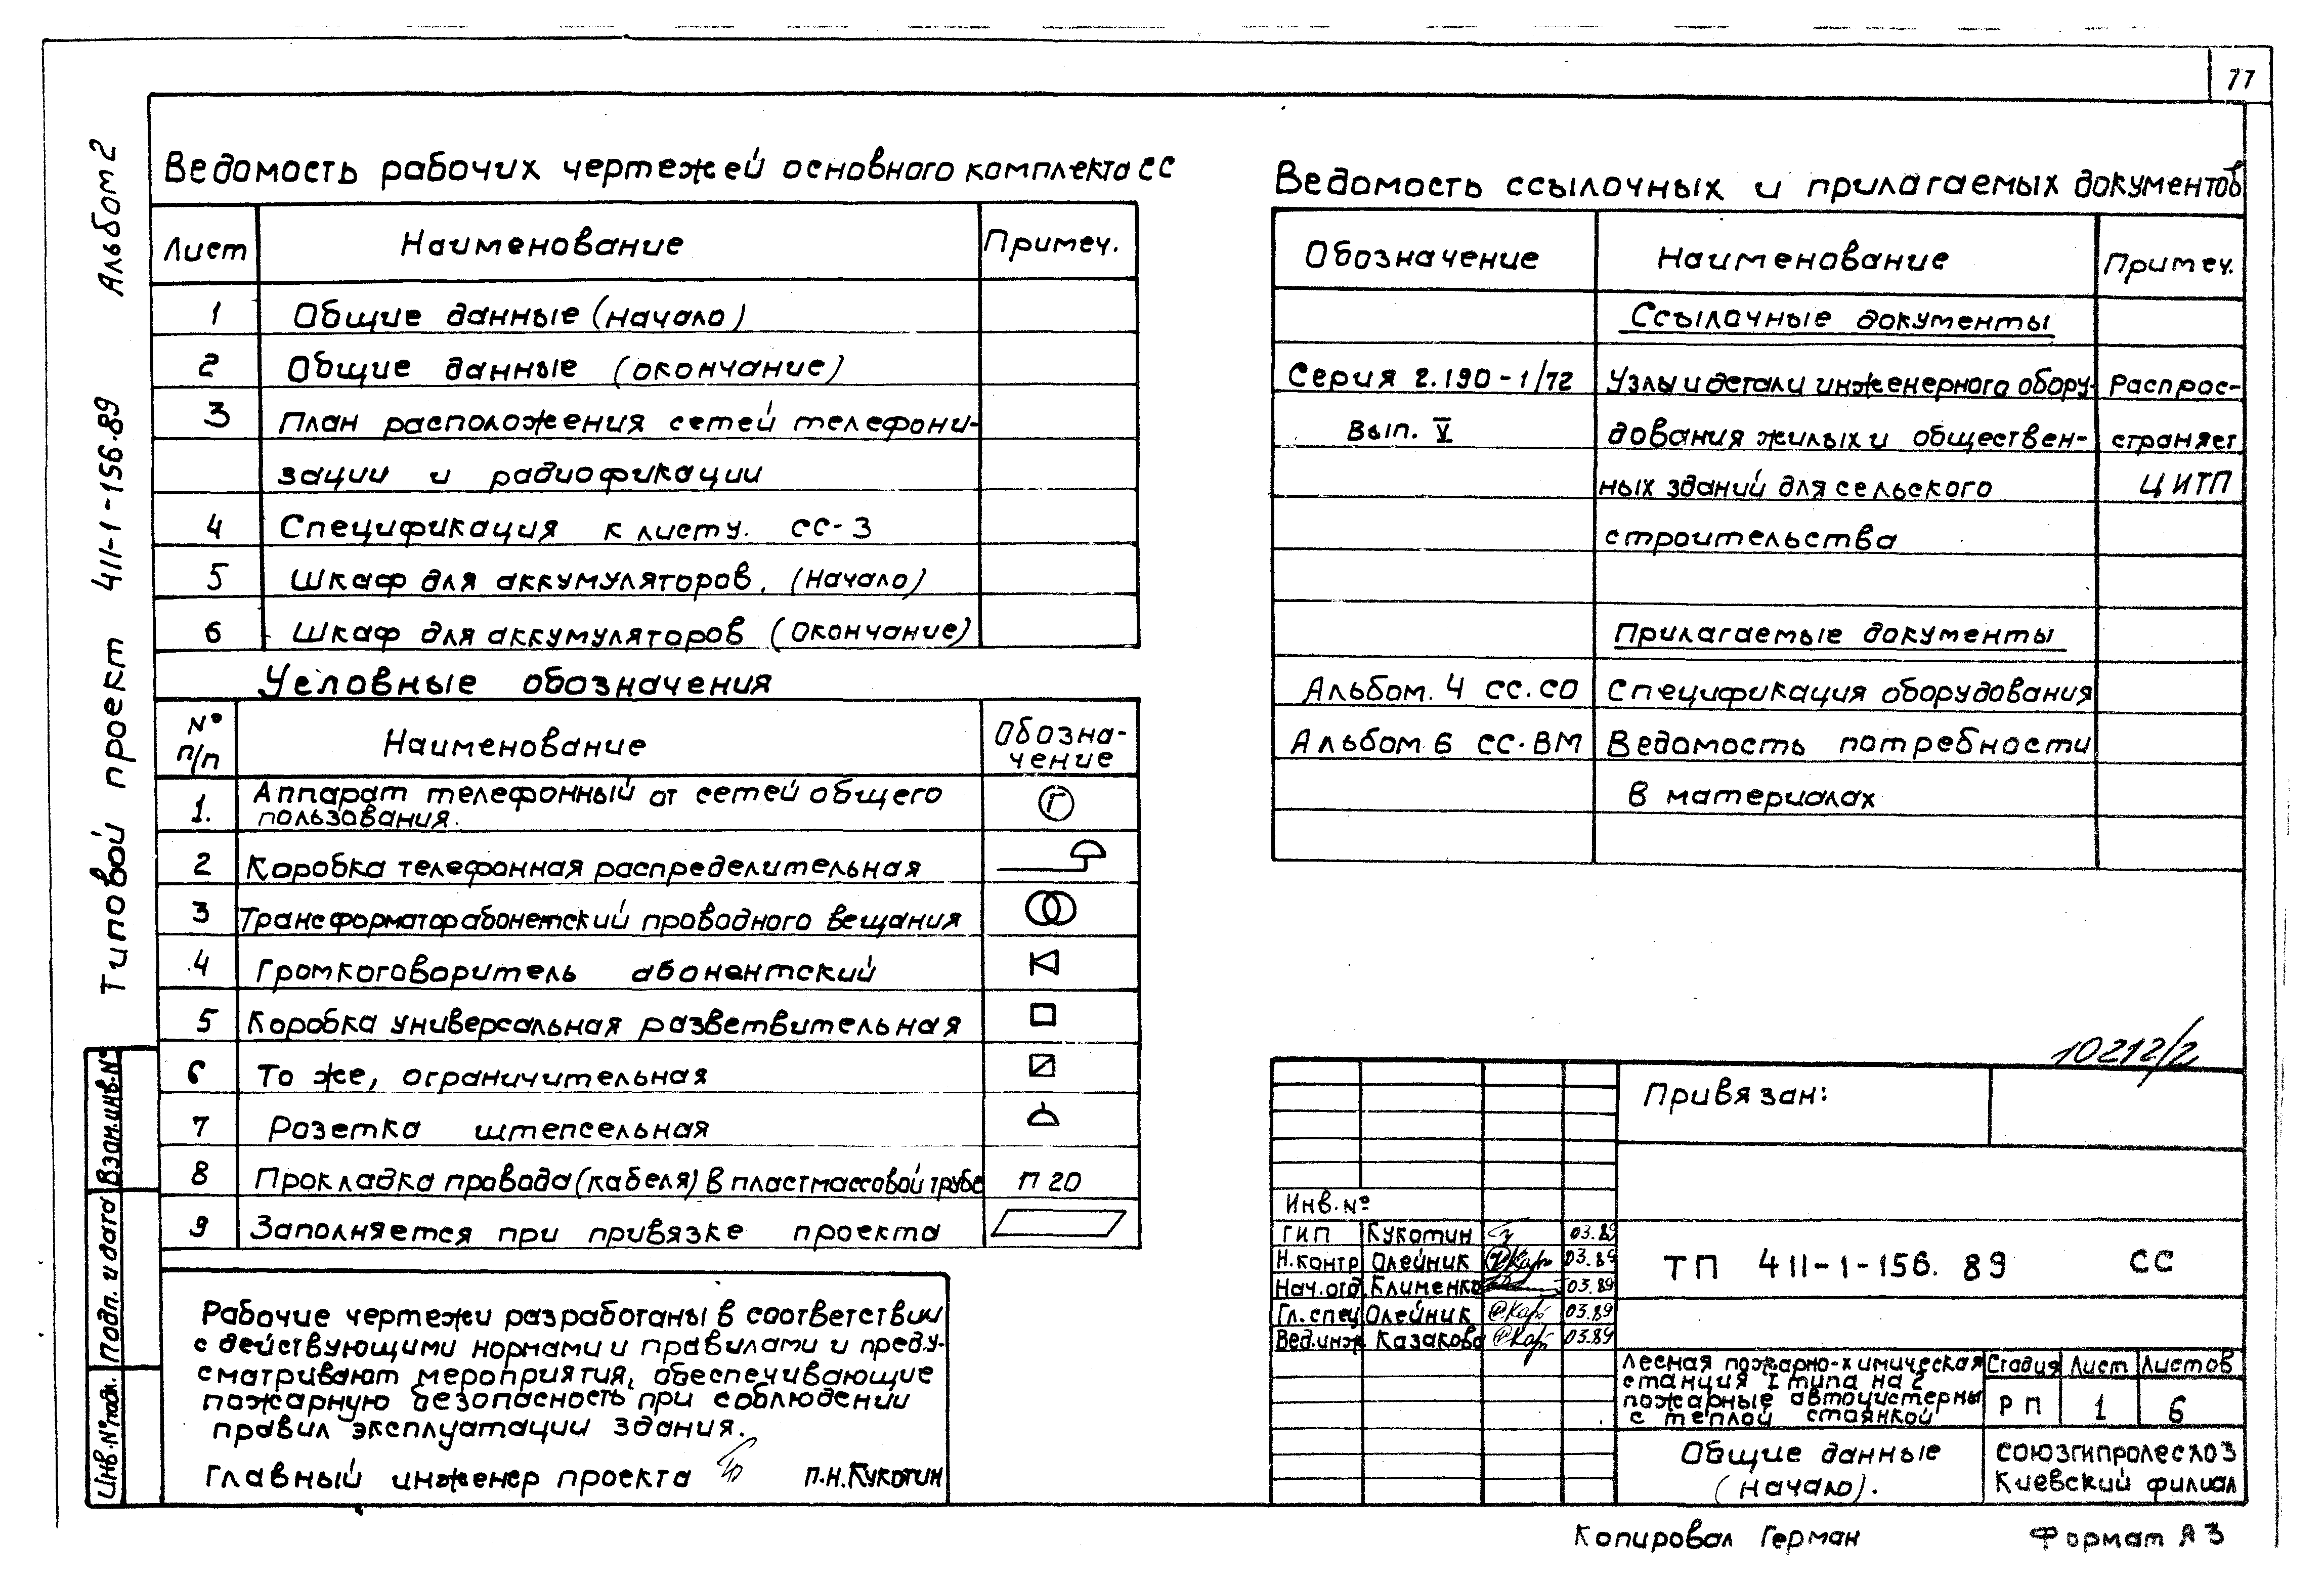 77
Альбом 2
Типовой проект 411-1-156.89
Ведомость рабочих чертежей основного комплекта СС
Лист Наименование Примеч.
1 Общие данные (начало)
2 Общие данные (окончание)
3 План расположения сетей телефони-
зации и радиофикации
4 Спецификация к листу. СС-3
5 Шкаф для аккумуляторов. (начало)
6 Шкаф для аккумуляторов (окончание)
Условные обозначения
№ п/п Наименование Обозна-
чение
1. Аппарат телефонный от сетей общего
пользования.
2 Коробка телефонная распределительная
3 Трансформатор абонетский проводного вещания
4 Громкоговоритель абонентский
5 Коробка универсальная разветвительная
6 То же, ограничительная
7 Розетка штепсельная
8 Прокладка провода (кабеля) в пластмассовой трубе П 20
9 Заполняется при привязке проекта
Рабочие чертежи разработаны в соответствии
с действующими нормами и правилами и преду-
сматривают мероприятия, обеспечивающие
пожарную безопасность при соблюдении
правил эксплуатации здания.
Главный инженер проекта П.Н.Кукотин
Взам.инв.№
Подп. и дата
Инв.№подл.
Ведомость ссылочных и прилагаемых документов
Обозначение Наименование Примеч.
Ссылочные документы
Серия 2.190-1/72 Узлы и детали инженерного обору- Распрос-
Вып. V дования жилых и обществен- страняет
ных зданий для сельского ЦИТП
строительства
Прилагаемые документы
Альбом. 4 СС.СО Спецификация оборудования
Альбом 6 СС.ВМ Ведомость потребности
в материалах
10212/2
Привязан:
Инв.№
ГИП Кукотин 03.89
Н.контр Олейник 03.89
Нач.отд. Клименко 03.89
Гл.спец Олейник 03.89
Вед.инж Казакова 03.89
ТП 411-1-156.89 СС
Лесная пожарно-химическая
станция I типа на 2
пожарные автоцистерны
с теплой стоянкой
Стадия Лист Листов
РП 1 6
Общие данные
(начало).
Союзгипролесхоз
Киевский филиал
Копировал Герман Формат А3